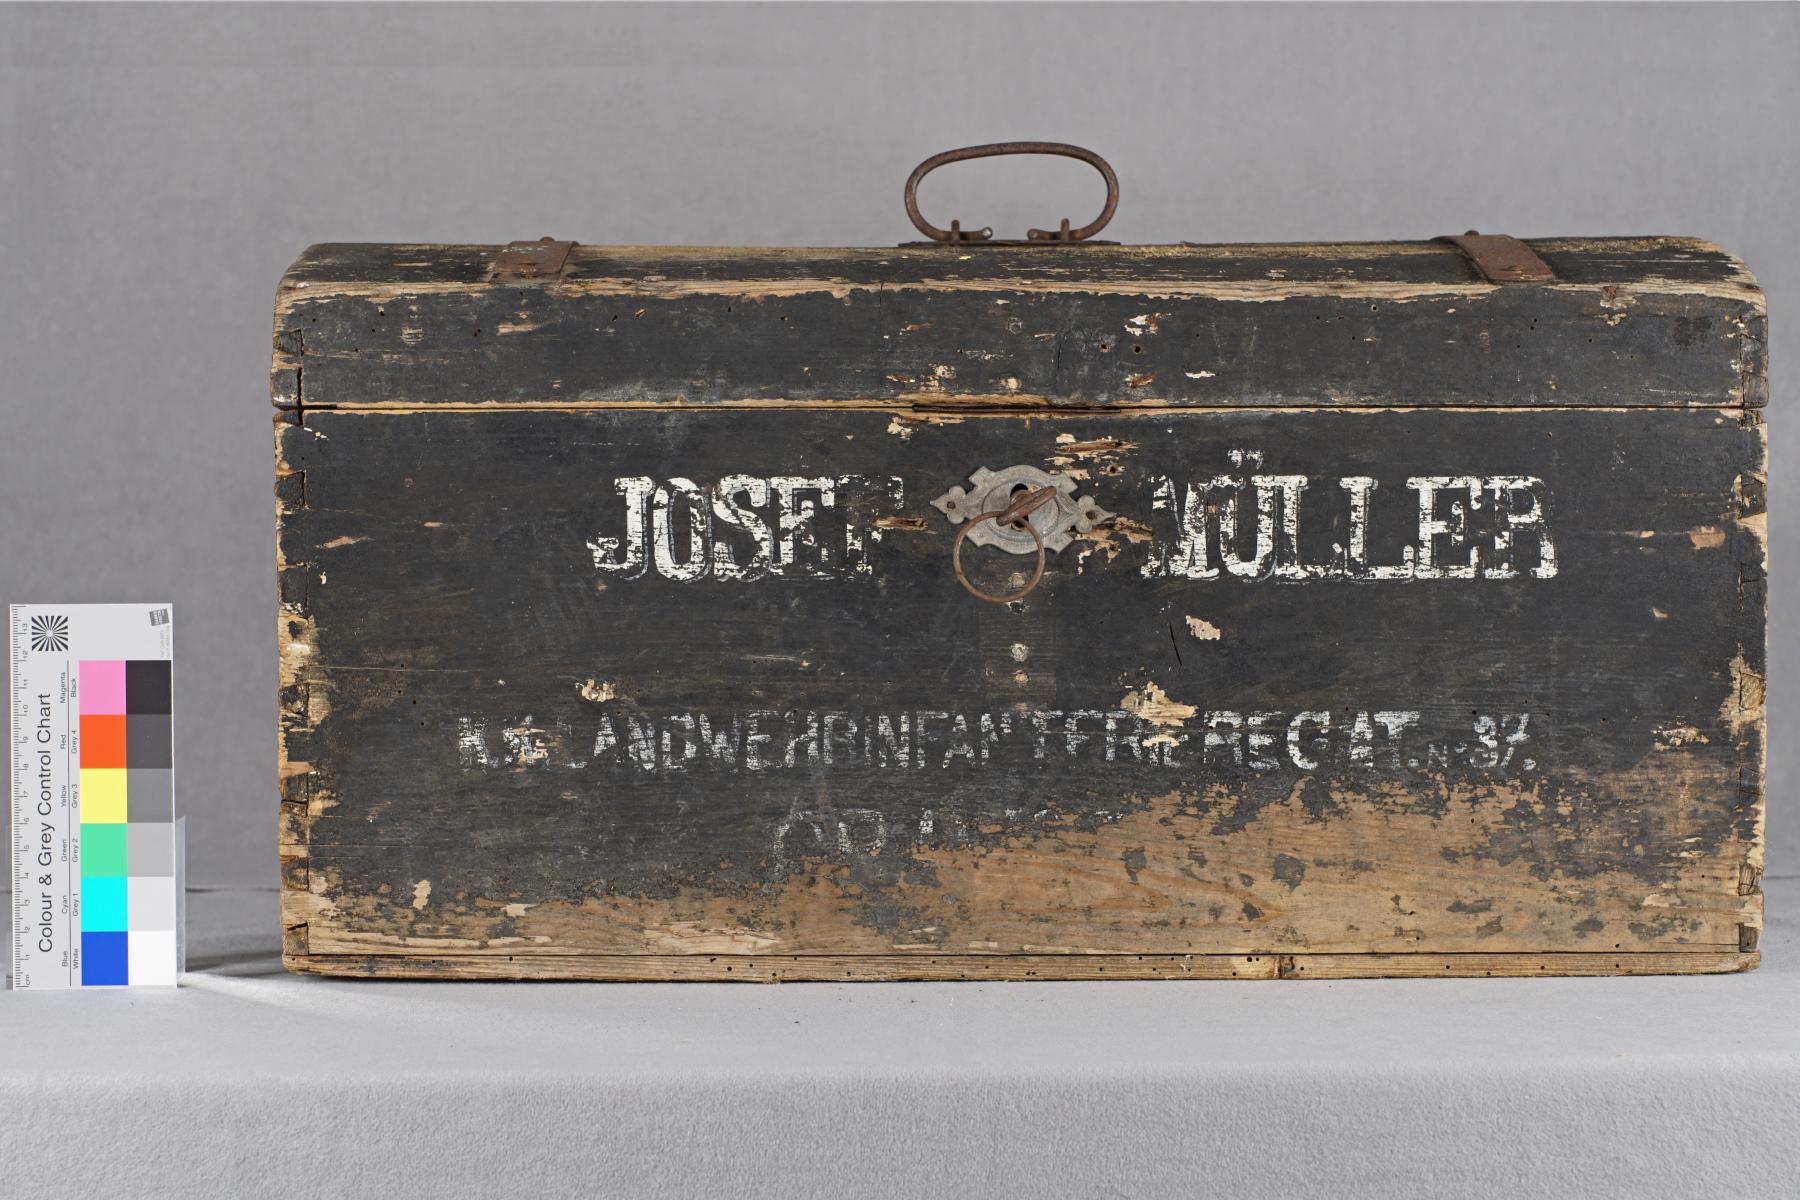 JOSEF MÜLLER
K.K. LANDWEHRINFANTERIE REGIAT. No 37.
Colour & Grey Control Chart
Blue Cyan Green Yellow Red Magenta
White Grey 1 Grey 2 Grey 3 Grey 4 Black